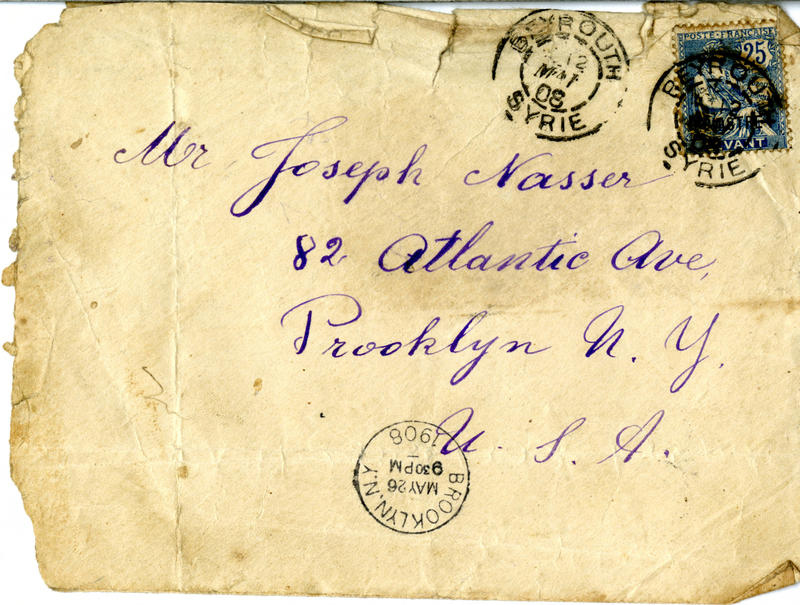 BEYROUTH
12
MAI
08
SYRIE
POSTE FRANÇAISE
25
BEYROUTH
SYRIE
Mr Joseph Nasser
82 Atlantic Ave,
Prooklyn N. Y.
U. S. A.
BROOKLYN, N.Y.
MAY 26
930PM
1908